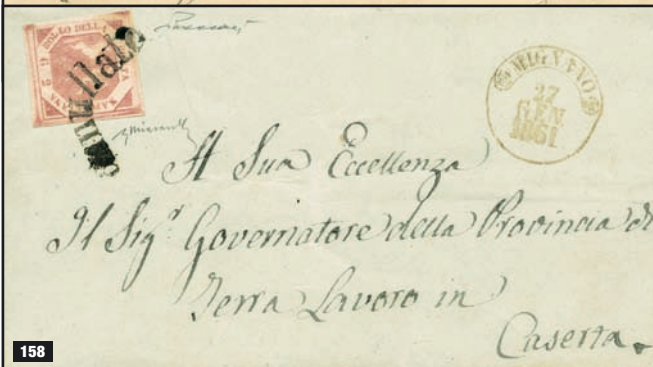 BOLLO DELLA
G 2
annullato
MIGNANO
27
GEN
1861
A Sua Eccellenza
Il Sigr Governatore della Provincia di
Terra Lavoro in
Caserta.
158